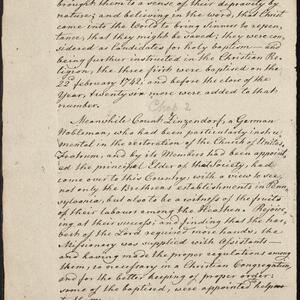 brought them to a sense of their depravity by
nature; and believing on the word, that Christ
came into the World to bring Sinners to repen-
tance, that they might be saved; they were con-
sidered as Candidates for holy baptism — and
being further instructed in the Christian Re-
ligion, the three first were baptised on the
22d February 1742, and before the close of the
Year, twenty six more were added to that
number.
Chap 2
Meanwhile Count Zinzendorf, a German
Nobleman, who had been particularly instru-
mental in the restoration of the Church of Unitas
Fratrum, and by its Members had been appoint-
ed the principal Elder of that Society, had
come over to this Country, with a view to see
not only the Brethrens establishments in Penn-
sylvania, but also to be a witness of the fruits
of their labours among the Heathen. Rejoic-
ing at their success; and finding that the har-
vest of the Lord required more hands, the
Missionary was supplied with Assistants —
and having made the proper regulations among
them, so necessary in a Christian Congregation,
and for the better keeping of proper order;
some of the baptised, were appointed helpers